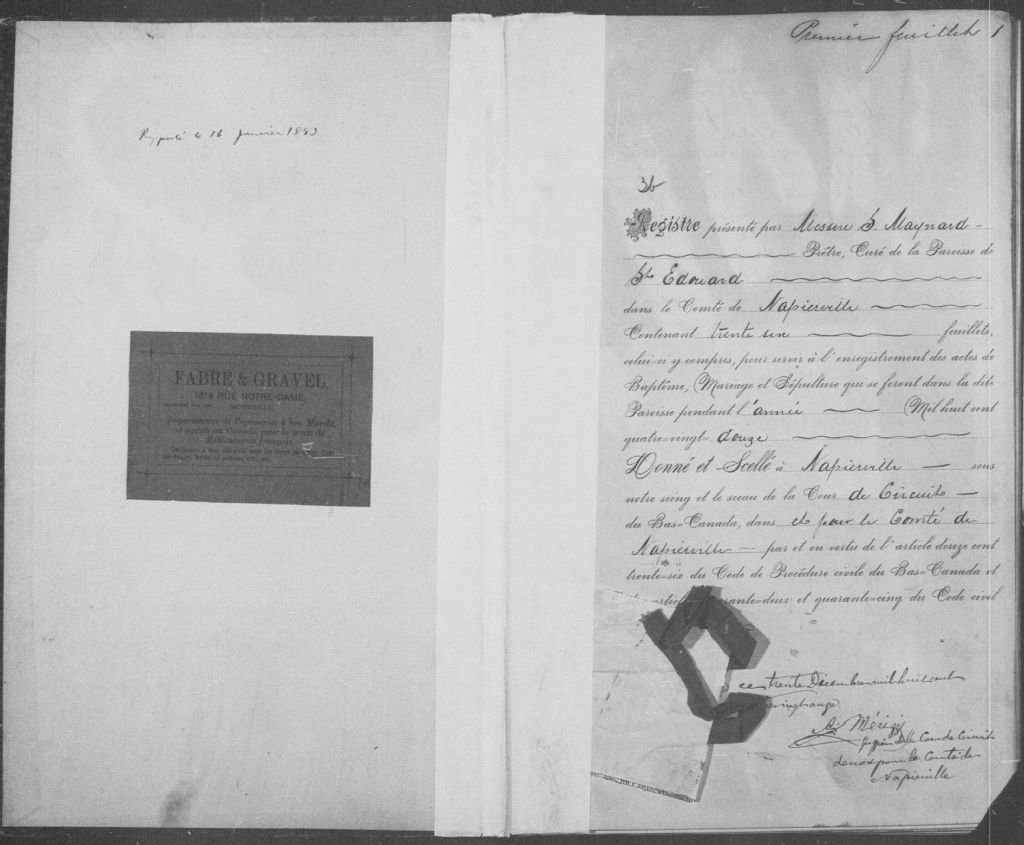 Rapporté le 16 janvier 1893
FABRE & GRAVEL,
1619 RUE NOTRE-DAME,
MONTREAL.
Département de Tapisseries à bon Marché,
et agents au Canada pour la vente de
Médicaments français.
Premier feuillet 1
36
Registre présenté par Messire S. Maynard
Prêtre, Curé de la Paroisse de
St Edouard
dans le Comté de Napierville
Contenant trente six feuillets,
celui-ci y compris, pour servir à l'enregistrement des actes de
Baptême, Mariage et Sépulture qui se feront dans la dite
Paroisse pendant l'année Mil huit cent
quatre-vingt douze
Donné et Scellé à Napierville sous
notre seing et le sceau de la Cour de Circuit
du Bas-Canada, dans et pour le Comté de
Napierville par et en vertu de l'article douze cent
trente-six du Code de Procédure civile du Bas-Canada et
quarante-deux et quarante-cinq du Code civil
ce trente Décembre mil huit cent
vingt onze
Mérizzi
de la Cour de Circuit
dans & pour le Comté de
Napierville